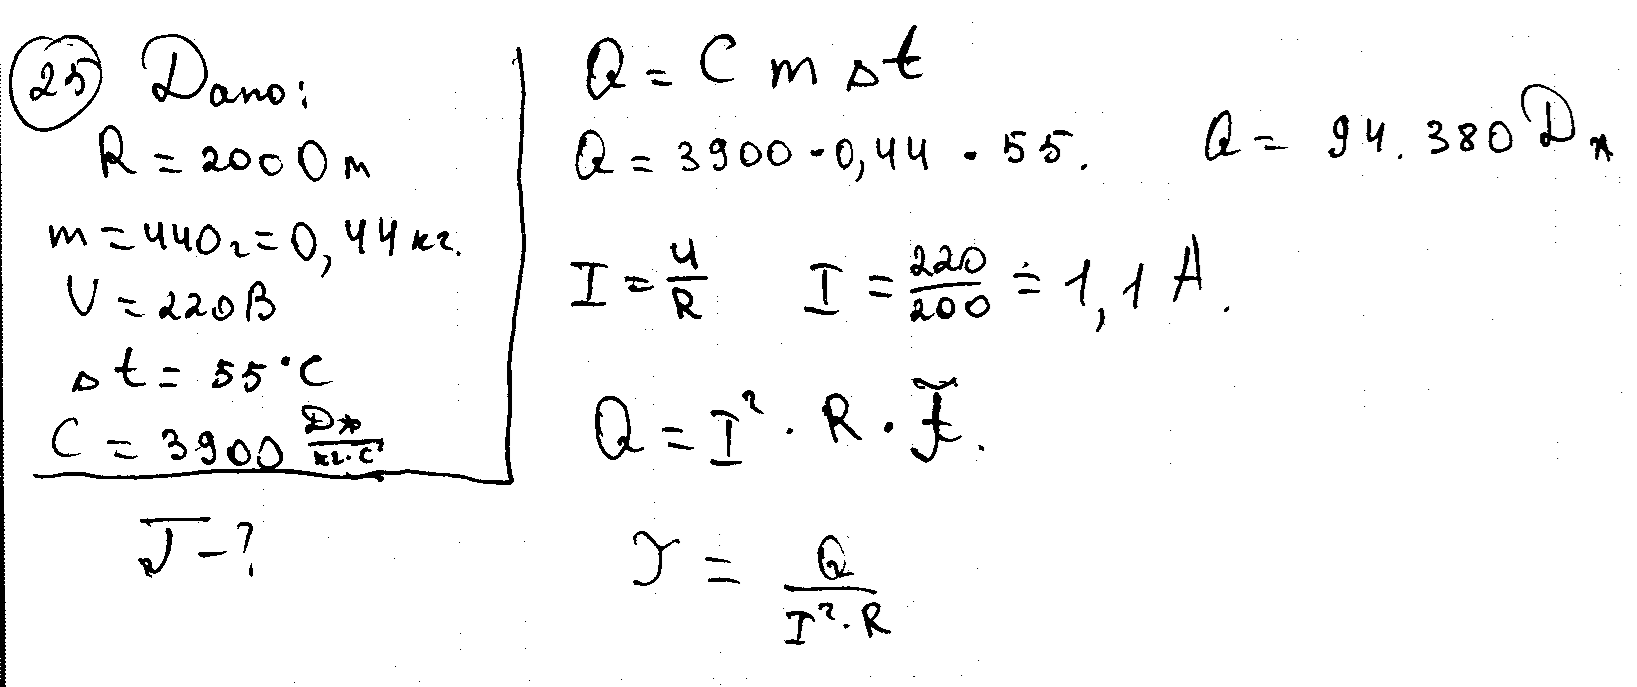 25 Дано:
R = 200 Ом
m = 440г = 0,44 кг.
U = 220В
Δt = 55°C
C = 3900 Дж/кг·C°
τ - ?
Q = C m Δt
Q = 3900 · 0,44 · 55. Q = 94.380 Дж
I = U/R I = 220/200 = 1,1 А.
Q = I² · R · τ.
τ = Q/I²·R